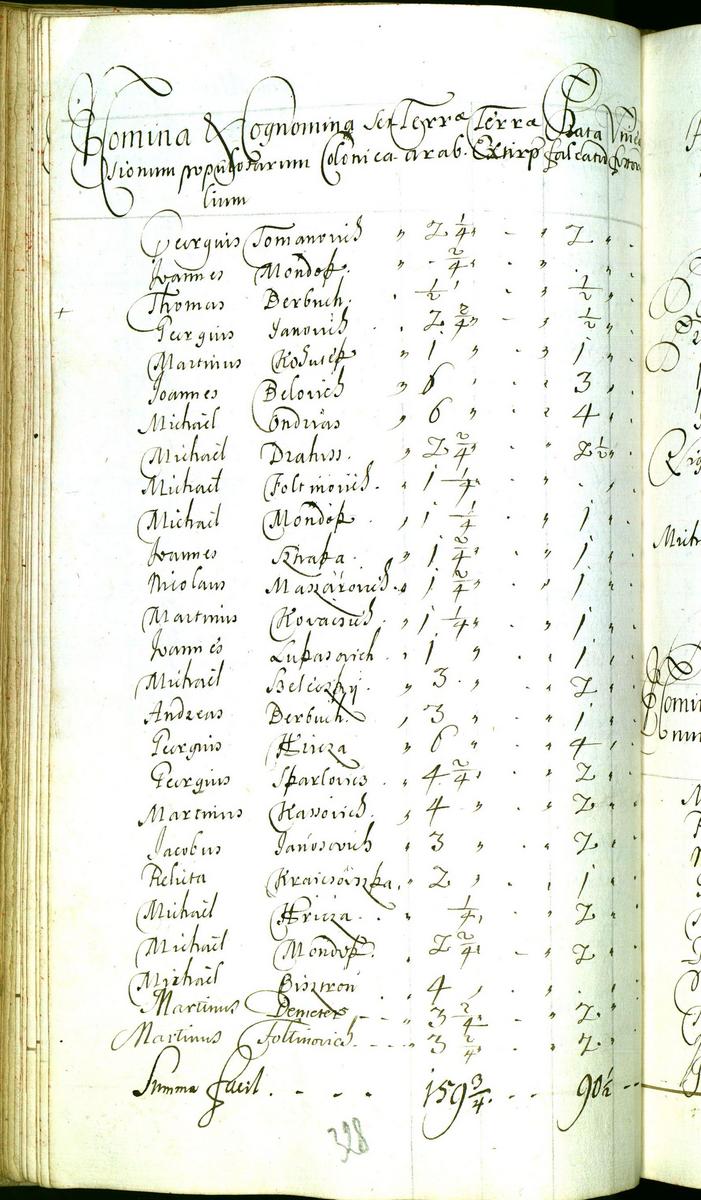 Nomina & Cognomina Ses Terra Terra Prata Vinea
sionum populosarum Colonica arab. Extirp falcatur
lium
Georgius Tomanovich „ 2 1/4 „ - „ 2 „
Joannes Mondok „ - 2/4 „
Thomas Berbuch. 1/2 „ 1/2
Georgius Janovich . 2 2/4 „ - „ 1/2 „
Martinus Kohutek „ 1 „ - „ 1 „
Joannes Belovich „ 6 „ 3 „
Michael Ondrias „ 6 „ „ 4 „
Michael Drahuss. „ 2 2/4 „ „ 2 1/2 „
Michael Foltinovich. „ 1 1/4 „
Michael Mondok „ 1 1/4 - „ 1 „
Joannes Sztraka „ 1 2/4 „ - „ 1 „
Nicolaus Maszárovich. „ 1 2/4 „ „ 1 „
Martinus Kovacsich „ 1 1/4 „ - „ 1 „
Joannes Lukasovich . 1 „ - . 1 „
Michael „ 3 „ - „ 2 „
Andreas Berbuch. „ 3 „ - „ 1 „
Georgius Hricza „ 6 „ - „ 4 „
Georgius Sparlovics „ 4 2/4 „ - „ 2 „
Martinus Kassovich. „ 4 „ - „ 2 „
Jacobus Janosovich „ 3 „ - „ 2 „
Relicta Kraicsovszka. „ 2 „ - „ 1 „
Michael Hricza . „ 1/4 „ - „ 2 „
Michael Mondok . 2 2/4 „ - „ 2 „
Michael Bisztron . 4 „
Martinus Demeter - - „ 3 2/4 - - „ 2 „
Martinus Foltinovich - - - „ 3 2/4 „ - „ 2 „
Summa facit . - - . 159 3/4 . - - 90 1/2 - -
328